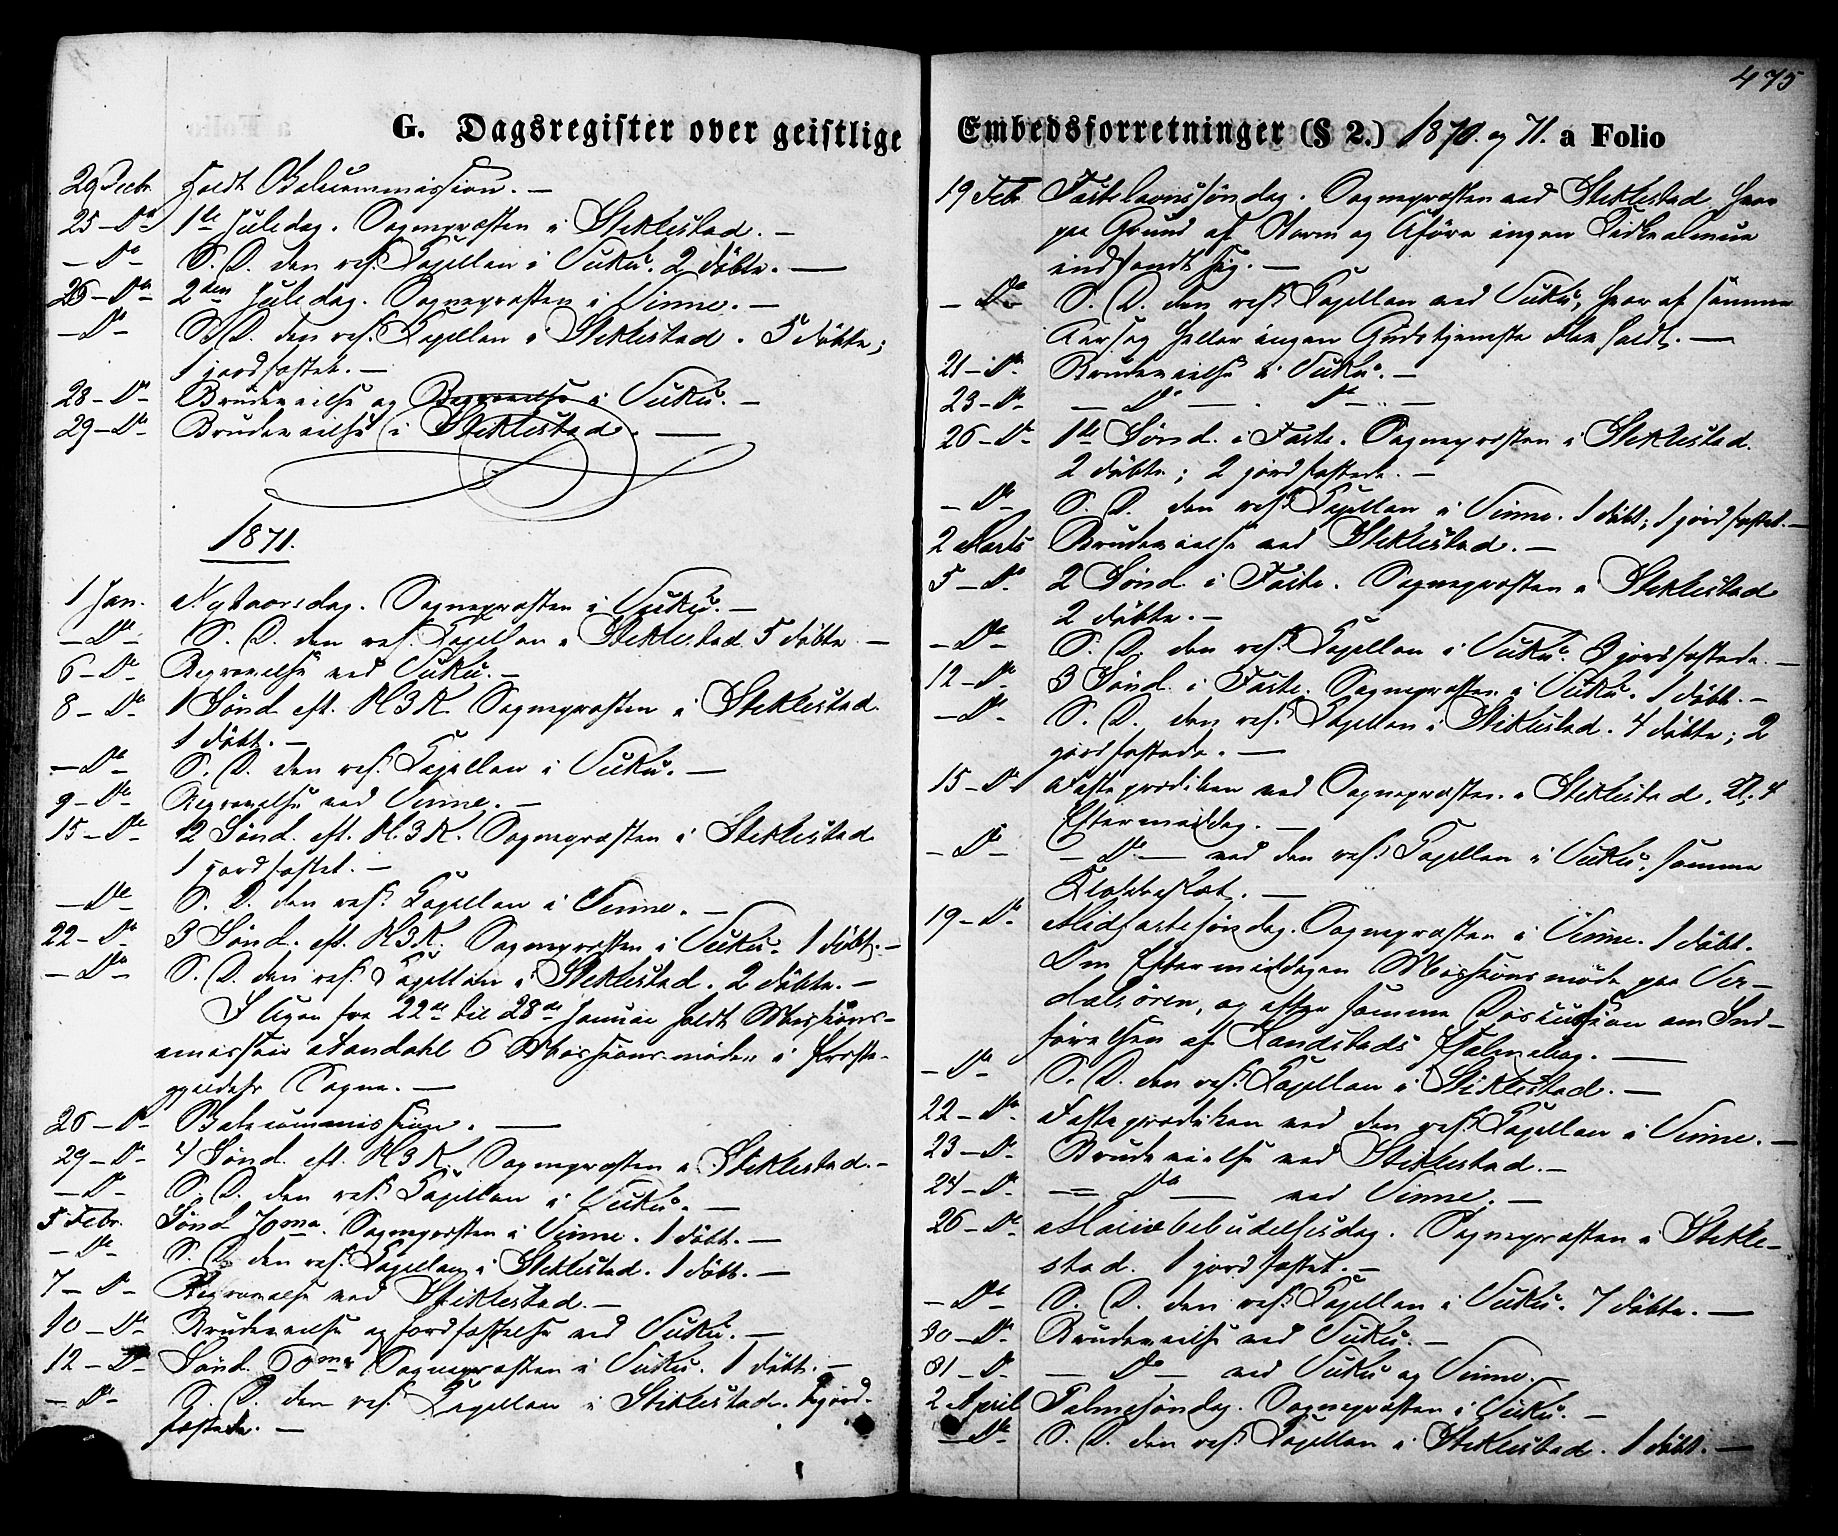 475
G. Dagsregister over geistlige Embedsforretninger (§ 2.) 1870. og 71. a Folio
holdt Valcommission. —
25 – Do 1ste Juledag. Sognepræsten i Stiklestad. —
— Do – S. D. den res. Capellan i Vuku. 2 døbte. —
26 – Do 2den Juledag. Sognepræsten i Vinne. —
— Do – S. D. den res. Capellan i Stiklestad. 5 døbte;
1 jordfæstet. —
28 – Do Brudevielse og Begravelse i Vuku. —
29 – Do Brudevielse i Stiklestad. —
1871.
1 Jan. Nytaarsdag. Sognepræsten i Vuku. —
— Do – S. D. den res. Capellan i Stiklestad 5 døbte —
6 – Do Begravelse ved Vuku. —
8 – Do 1 Sønd. eft. H3K. Sognepræsten i Stiklestad.
1 døbt. —
— Do – S. D. den res. Capellan i Vuku. —
9 – Do Begravelse ved Vinne. —
15 – Do 2 Sønd. eft. H.3K. Sognepræsten i Stiklestad
1 jordfæstet. —
— Do – S. D. den res. Capellan i Vinne. —
22 – Do 3 Sønd. eft. H3K. Sognepræsten i Vuku. 1 døbt. —
— Do – S. D. den res. Capellan i Stiklestad. 2 døbte. —
I Ugen fra 22de til 28de Januar holdt Missions-
emissær 6 Missionsmøder i Præste-
gjeldets Sogne. —
26 – Do Valcommission. —
29 – Do 4 Sønd. eft. H3K. Sognepræsten i Stiklestad. —
— Do – S. D. den res. Capellan i Vuku. —
5 Febr. Sønd 70ma. Sognepræsten i Vinne. 1 døbt. —
— Do – S. D. den res. Capellan i Stiklestad. 1 døbt. —
7 – Do Begravelse ved Stiklestad. —
10 – Do Brudevielse og Jordfæstelse ved Vuku. —
12 – Do Sønd. 60ma Sognepræsten i Vuku. 1 døbt. —
— Do – S. D. den res. Capellan i Stiklestad. jord-
fæstede. —
19 Feb Fastelavnssøndag. Sognepræsten ved Stiklestad, hvor
paa Grund af Storm og Uføre ingen Kirkealmue
indfandt sig. —
— Do S. D. den res. Capellan ved Vuku, hvor af samme
Aarsag heller ingen Gudstjeneste blev holdt. —
21 – Do Brudevielse i Vuku. —
23 – Do — Do — . Do —
26 – Do 1ste Sønd. i Faste. Sognepræsten i Stiklestad.
2 døbte; 2 jordfæstede. —
— Do – S. D. den res. Capellan i Vinne. 1 døbt; 1 jordfæstet. —
2 Marts Brudevielse ved Stiklestad. —
5 – Do 2 Sønd. i Faste. Sognepræsten i Stiklestad
2 døbte. —
— Do – S. D. den res. Capellan i Vuku. 3 jordfæstede. —
12 – Do 3 Sønd. i Faste. Sognepræsten i Vuku. 1 døbt. —
— Do – S. D. den res. Capellan i Stiklestad. 4 døbte; 2
jordfæstede. —
15 – Do Fasteprædiken ved Sognepræsten i Stiklestad. Kl. 4
Eftermiddag. —
— Do – — Do — ved den res. Capellan i Vuku. samme
Klokkeslæt. —
19 – Do Midfastesøndag. Sognepræsten i Vinne. 1 døbt.
Om Eftermiddagen Missionsmøde paa Ver-
dalsøren, og efter samme Discussion om Ind-
førelsen af Landstads Psalmebog. —
— Do – S. D. den res. Capellan i Stiklestad. —
22 – Do Fasteprædiken ved den res. Capellan i Vinne. —
23 – Do Brudevielse ved Stiklestad. —
24 – Do — Do — ved Vinne. —
26 – Do Mariæ bebudelsesdag. Sognepræsten i Stikle-
stad. 1 jordfæstet. —
— Do – S. D. den res. Capellan i Vuku. 7 døbte. —
30 – Do Brudevielse ved Vuku. —
31 – Do — Do — ved Vuku og Vinne. —
2 April Palmesøndag. Sognepræsten i Vuku. —
— Do – S. D. den res. Capellan i Stiklestad. 1 døbt. —